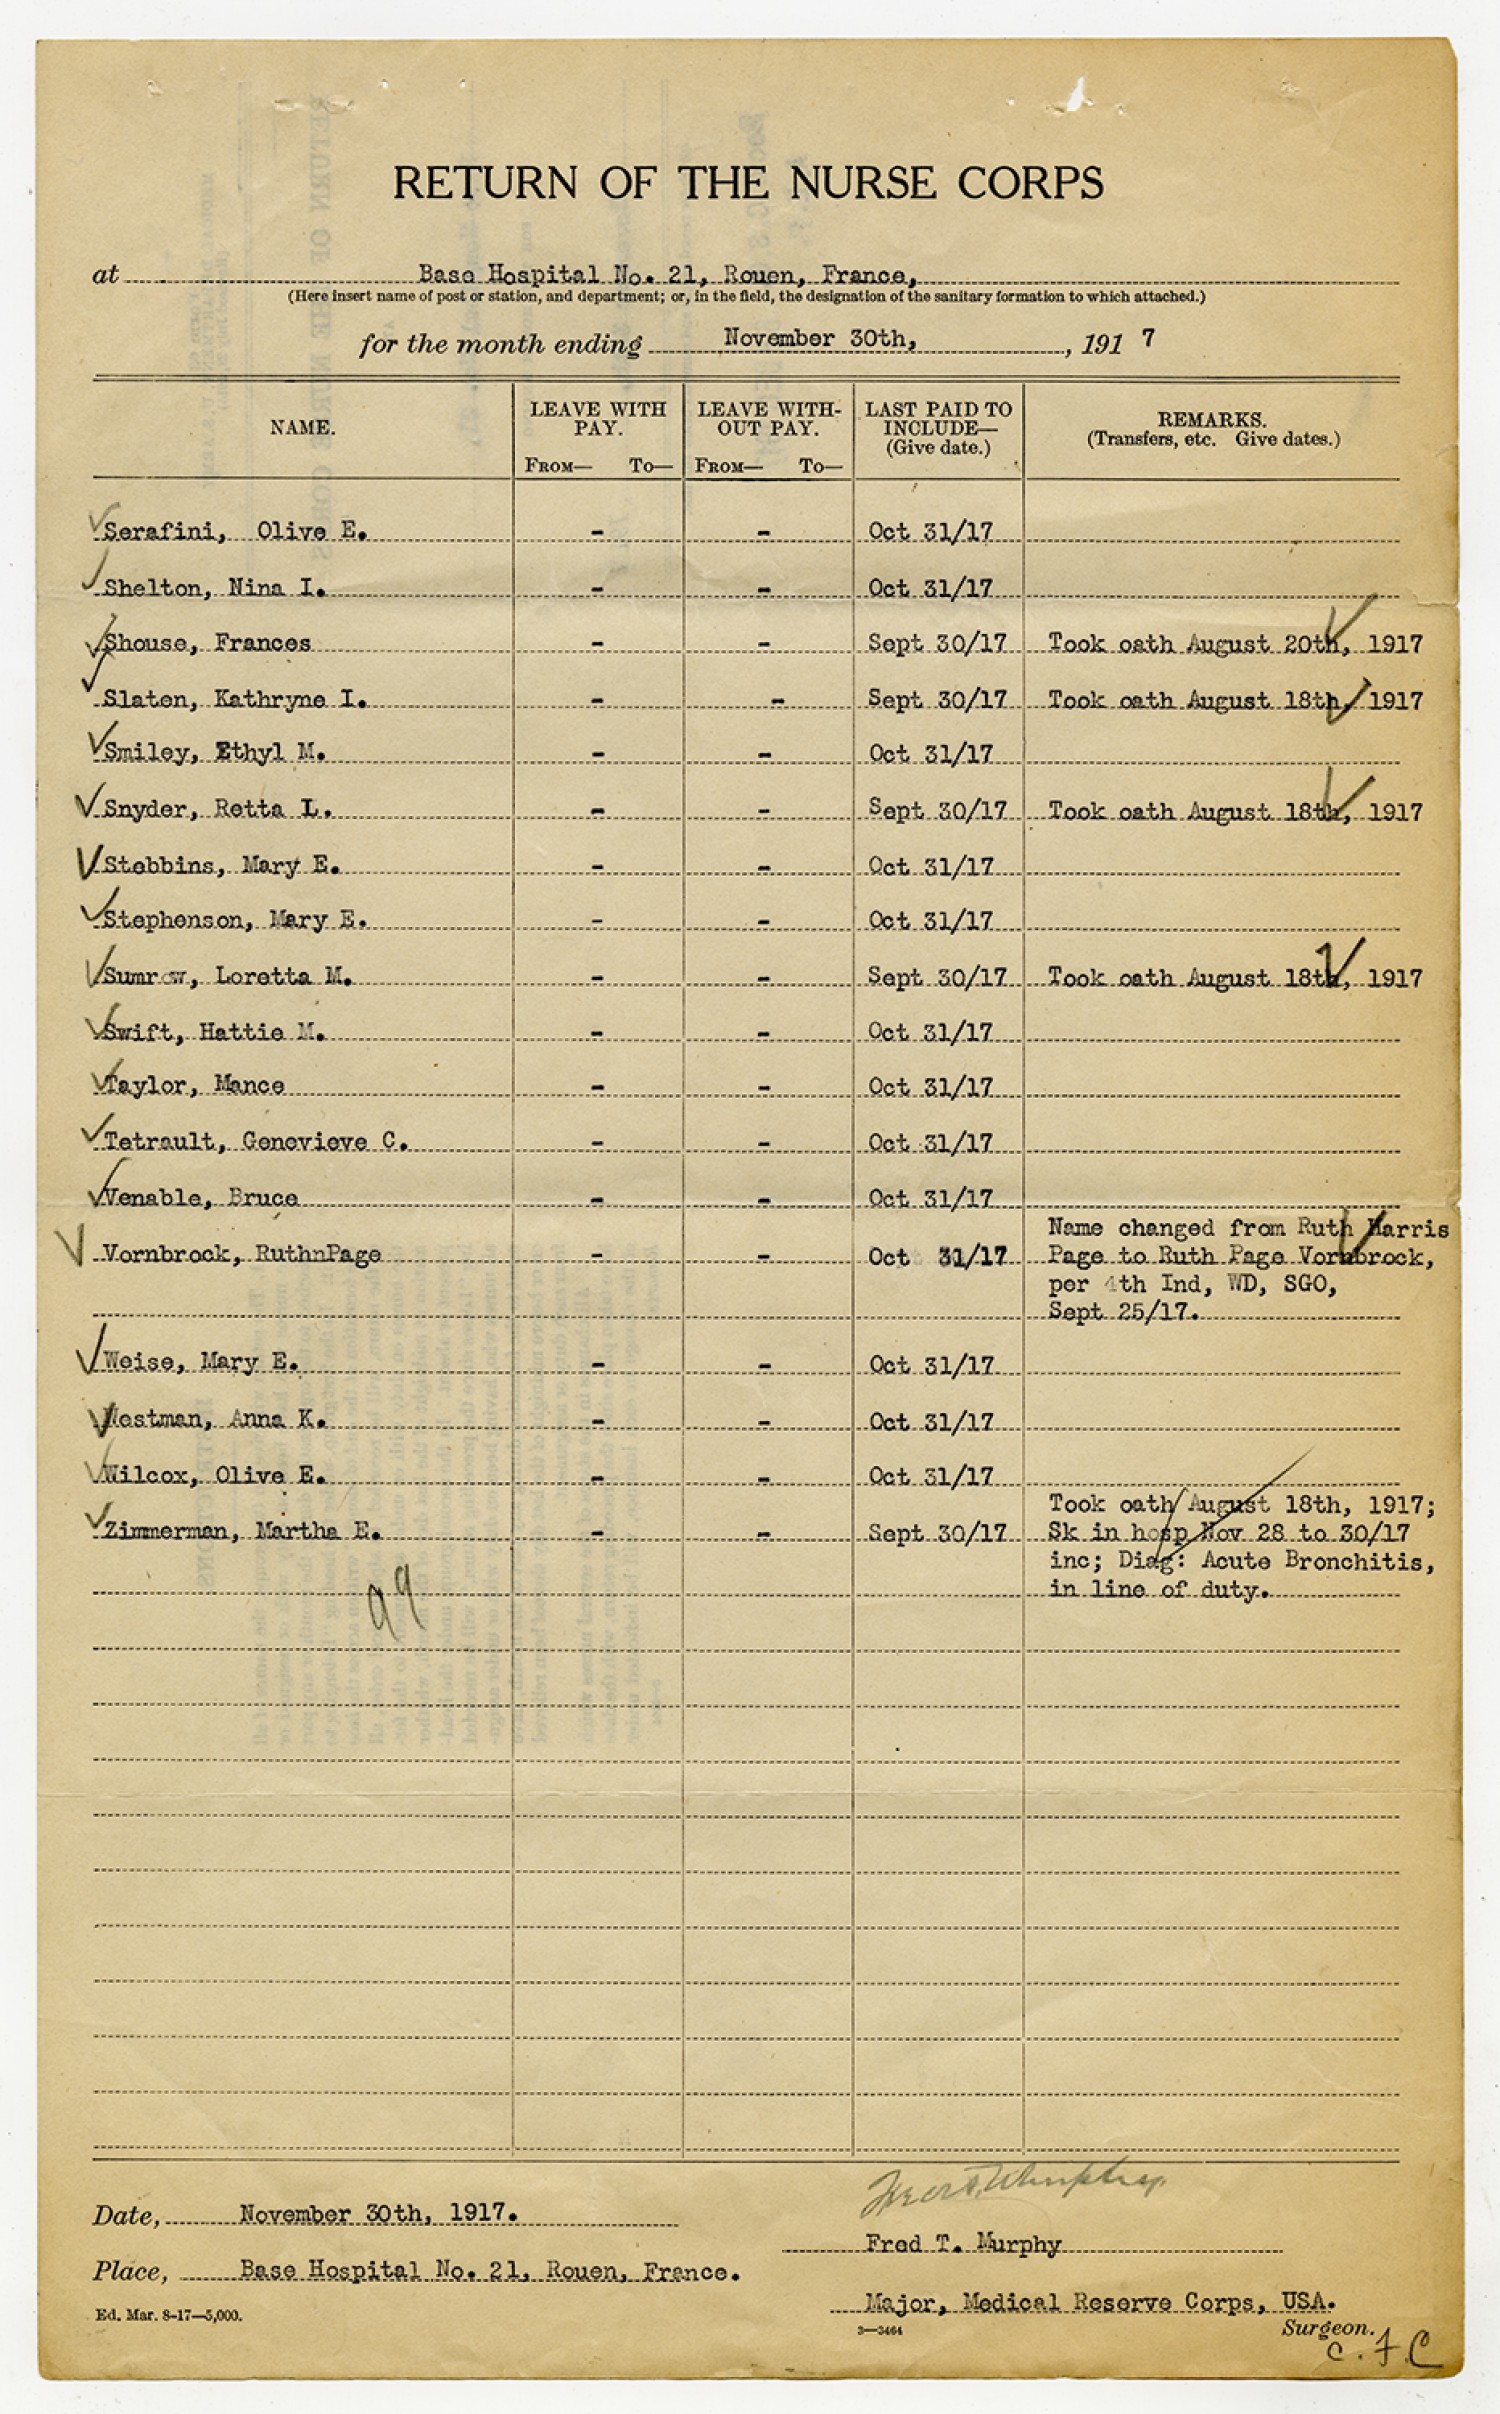 RETURN OF THE NURSE CORPS
at Base Hospital No. 21, Rouen, France,
(Here insert name of post or station, and department; or, in the field, the designation of the sanitary formation to which attached.)
for the month ending November 30th, , 191 7
NAME. LEAVE WITH PAY. From— To— LEAVE WITH-OUT PAY. From— To— LAST PAID TO INCLUDE— (Give date.) REMARKS. (Transfers, etc. Give dates.)
Serafini, Olive E. - - Oct 31/17
Shelton, Nina I. - - Oct 31/17
Shouse, Frances - - Sept 30/17 Took oath August 20th, 1917
Slaten, Kathryne I. - - Sept 30/17 Took oath August 18th, 1917
Smiley, Ethyl M. - - Oct 31/17
Snyder, Retta L. - - Sept 30/17 Took oath August 18th, 1917
Stebbins, Mary E. - - Oct 31/17
Stephenson, Mary E. - - Oct 31/17
Sumrow, Loretta M. - - Sept 30/17 Took oath August 18th, 1917
Swift, Hattie M. - - Oct 31/17
Taylor, Mance - - Oct 31/17
Tetrault, Genevieve C. - - Oct 31/17
Venable, Bruce - - Oct 31/17
Vornbrock, RuthnPage - - Oct 31/17 Name changed from Ruth Harris
Page to Ruth Page Vornbrock,
per 4th Ind, WD, SGO,
Sept 25/17.
Weise, Mary E. - - Oct 31/17
Westman, Anna K. - - Oct 31/17
Wilcox, Olive E. - - Oct 31/17
Zimmerman, Martha E. - - Sept 30/17 Took oath August 18th, 1917;
Sk in hosp Nov 28 to 30/17
inc; Diag: Acute Bronchitis,
in line of duty.
99
Date, November 30th, 1917.
Fred T. Murphy
Fred T. Murphy
Place, Base Hospital No. 21, Rouen, France.
Major, Medical Reserve Corps, USA.
Ed. Mar. 8-17—5,000.
3—3464
Surgeon.
C. F. C